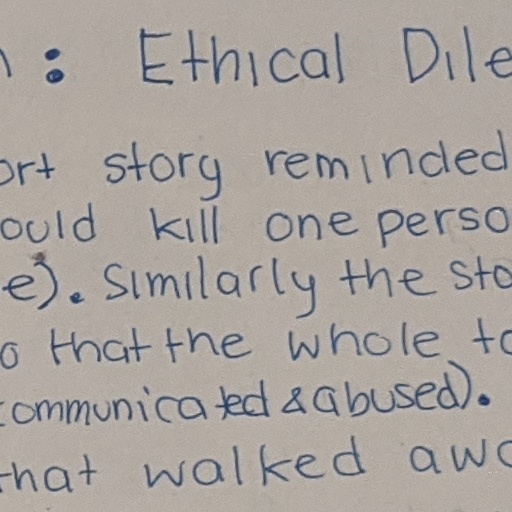 : Ethical Dile
ort story reminded
ould kill one perso
e). Similarly the sto
o that the whole to
communicated & abused).
that walked awa